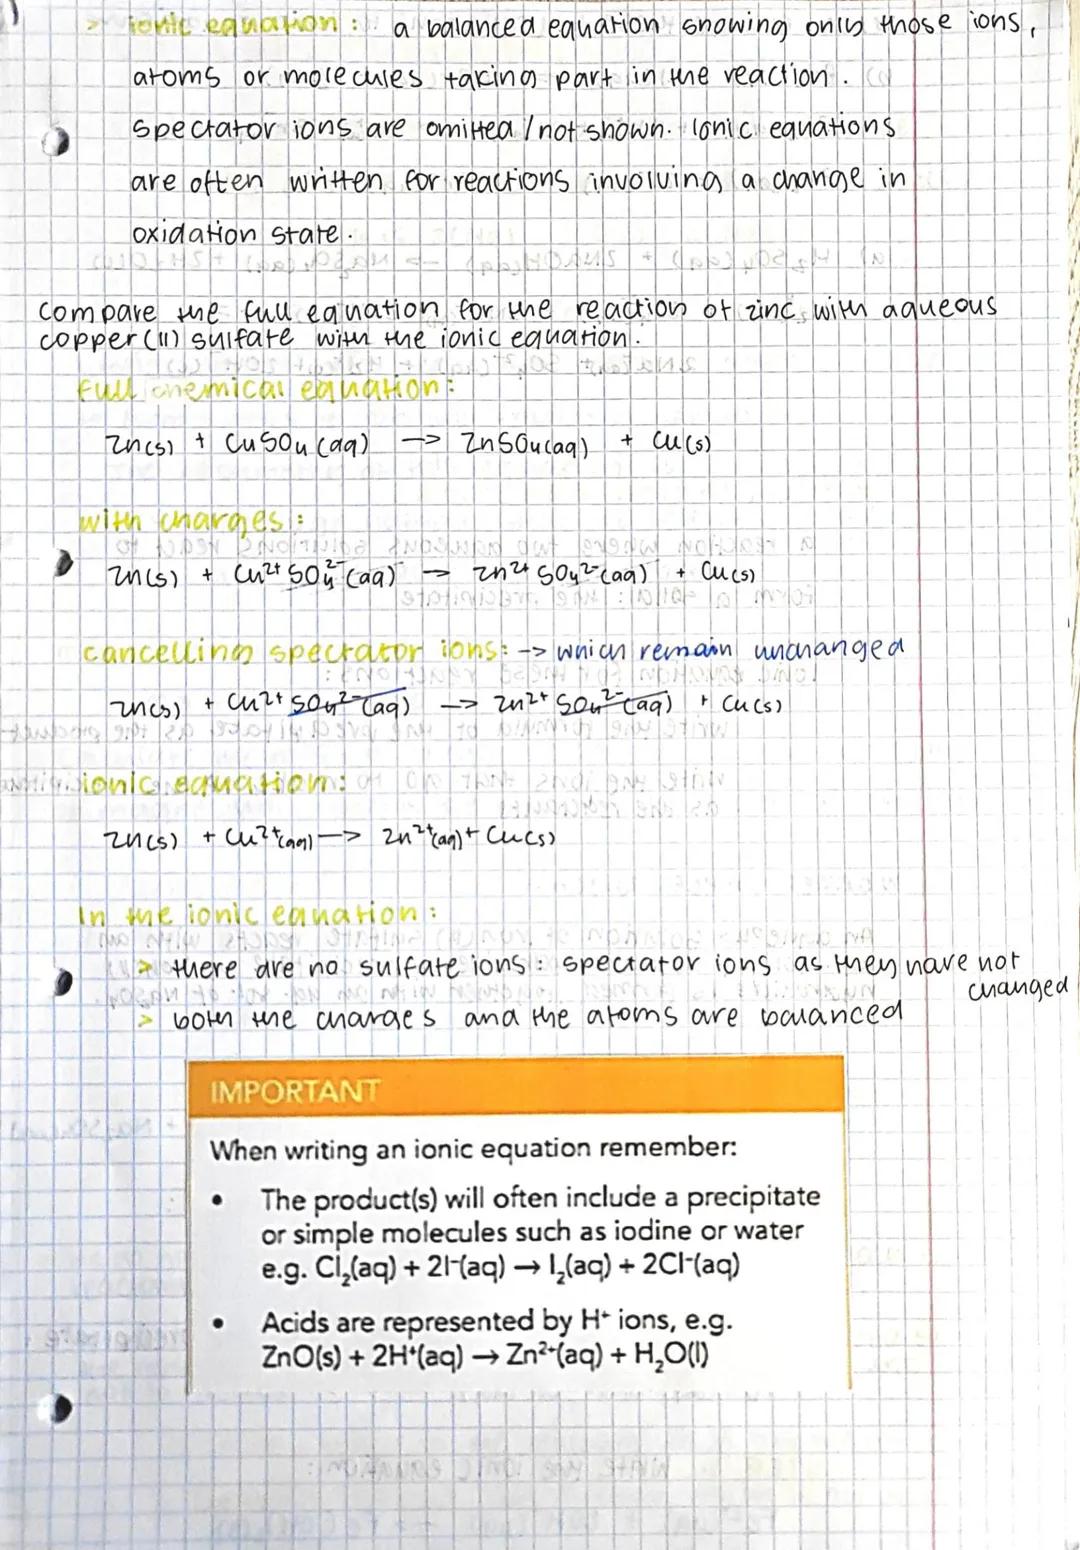 > ionic equation : a balanced equation showing only those ions,
atoms or molecules taking part in the reaction.
spectator ions are omitted / not shown. Ionic equations
are often written for reactions involving a change in
oxidation state.
compare the full equation for the reaction of zinc with aqueous
copper (II) sulfate with the ionic equation.
full chemical equation:
Zn(s) + CuSO₄ (aq) -> ZnSO₄(aq) + Cu(s)
with charges:
Zn(s) + Cu²⁺ SO₄²⁻ (aq) → Zn²⁺ SO₄²⁻(aq) + Cu(s)
cancelling spectator ions: -> which remain unchanged
Zn(s) + Cu²⁺ SO₄²⁻(aq) -> Zn²⁺ SO₄²⁻(aq) + Cu(s)
ionic equation:
Zn(s) + Cu²⁺(aq) -> Zn²⁺(aq) + Cu(s)
In the ionic equation:
> there are no sulfate ions : spectator ions as they have not
changed
> both the charges and the atoms are balanced
IMPORTANT
When writing an ionic equation remember:
• The product(s) will often include a precipitate
or simple molecules such as iodine or water
e.g. Cl₂(aq) + 2I⁻(aq) → I₂(aq) + 2Cl⁻(aq)
• Acids are represented by H⁺ ions, e.g.
ZnO(s) + 2H⁺(aq) → Zn²⁺(aq) + H₂O(l)